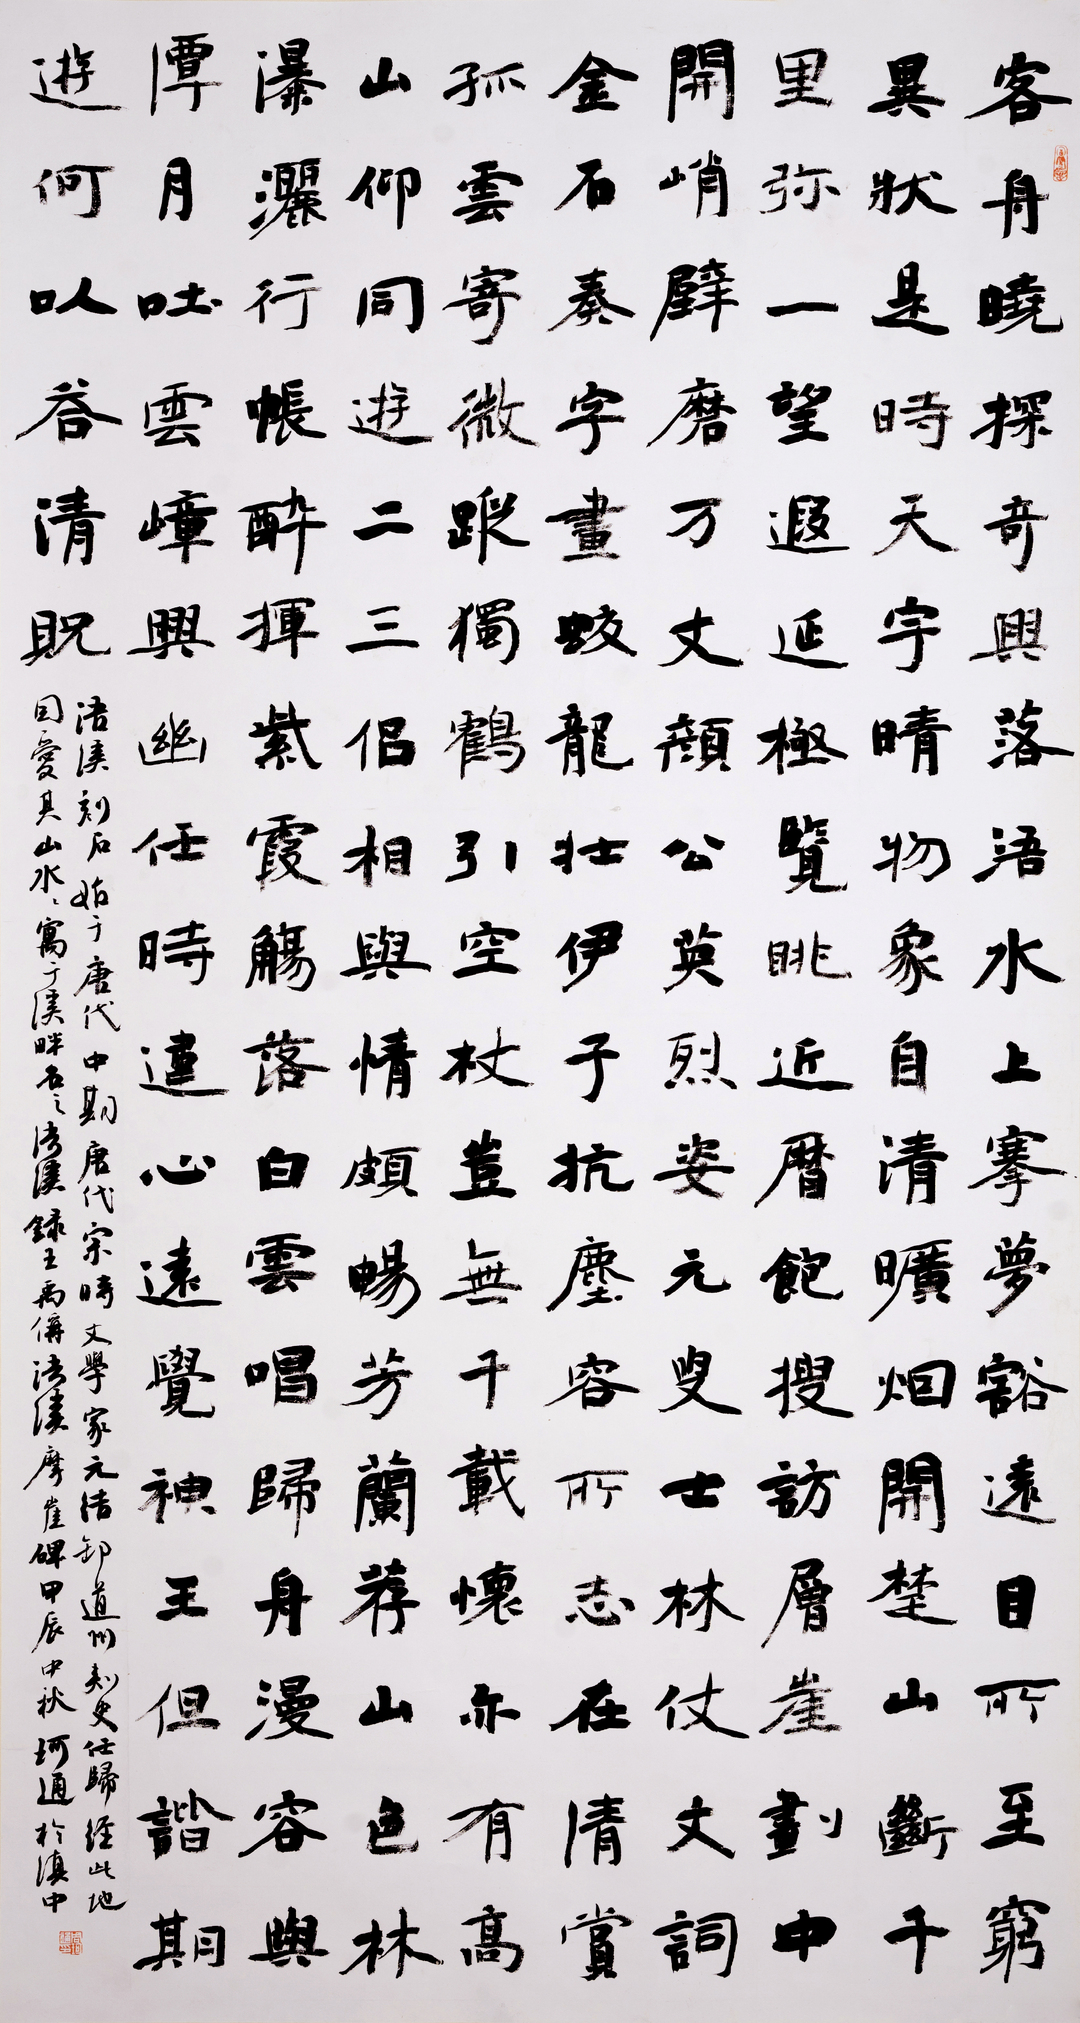 客舟曉探奇興落浯水上搴夢豁遠目所至窮
異狀是時天宇晴物象自清曠烟開楚山斷千
里弥一望遐延極覽眺近曆飽搜訪層崖劃中
開峭壁磨万丈顏公英烈姿元叟士林仗文詞
金石奏字畫蛟龍壯伊予抗塵容所志在清賞
孤雲寄微蹤獨鶴引空杖豈無千載懷亦有高
山仰同遊二三侶相與情頗暢芳蘭荐山色林
瀑灑行帳酔揮紫霞觴落白雲唱歸舟漫容與
潭月吐雲嶂興幽任時違心遠覺神王但諧期
遊何以答清貺
浯溪刻石始于唐代中期唐代宗時文學家元结卸道州刺史任歸經此地
因愛其山水々寓于溪畔名之浯溪錄王禹偁浯溪摩崖碑甲辰中秋珂通於滇中